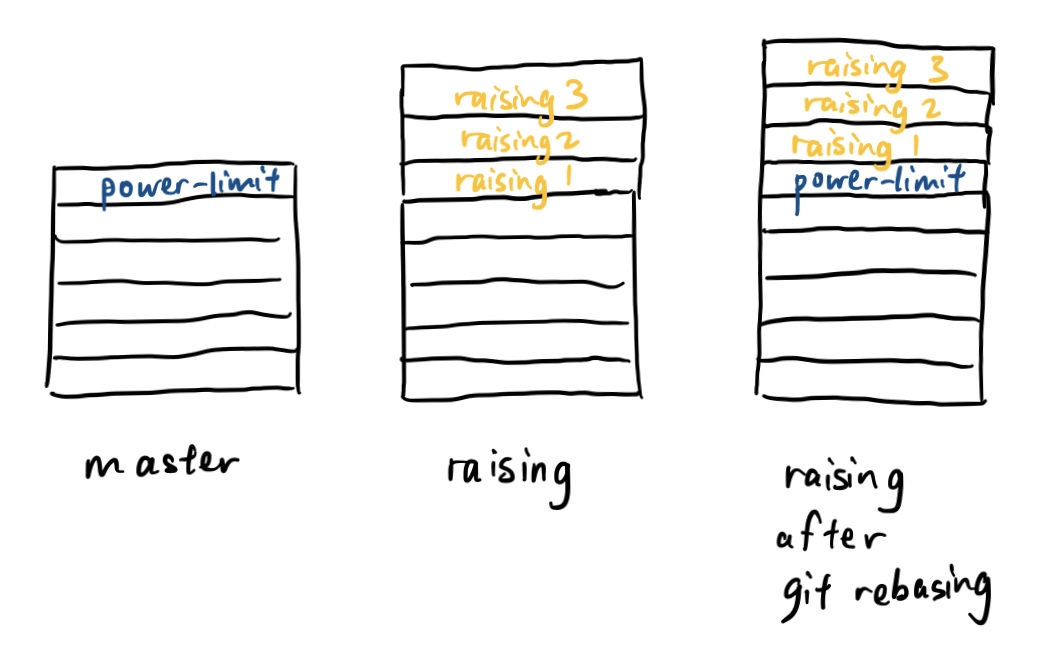 power-limit
master
raising 3
raising 2
raising 1
raising
raising 3
raising 2
raising 1
power-limit
raising
after
git rebasing